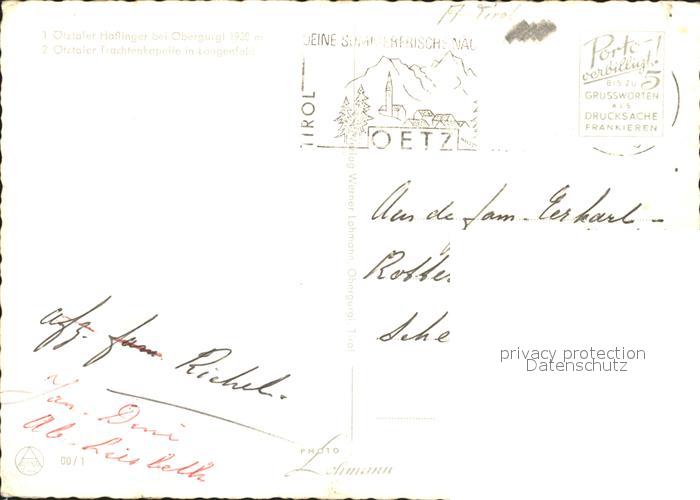 1 Ötztaler Haflinger bei Obergurgl 1930 m
2 Ötztaler Trachtenkapelle in Längenfeld
DEINE SOMMERFRISCHE NAC
TIROL
OETZ
Porto-
verbilligt!
BIS ZU 5
GRUSSWORTEN
ALS
DRUCKSACHE
FRANKIEREN
Verlag Werner Lohmann Obergurgl Tirol
Aan de fam. Erkart -
Rotte
Sche
privacy protection
Datenschutz
afz. fam. Richel.
Jan. Dini
Ab. Liesbeth
00/1
PHOTO
Lohmann